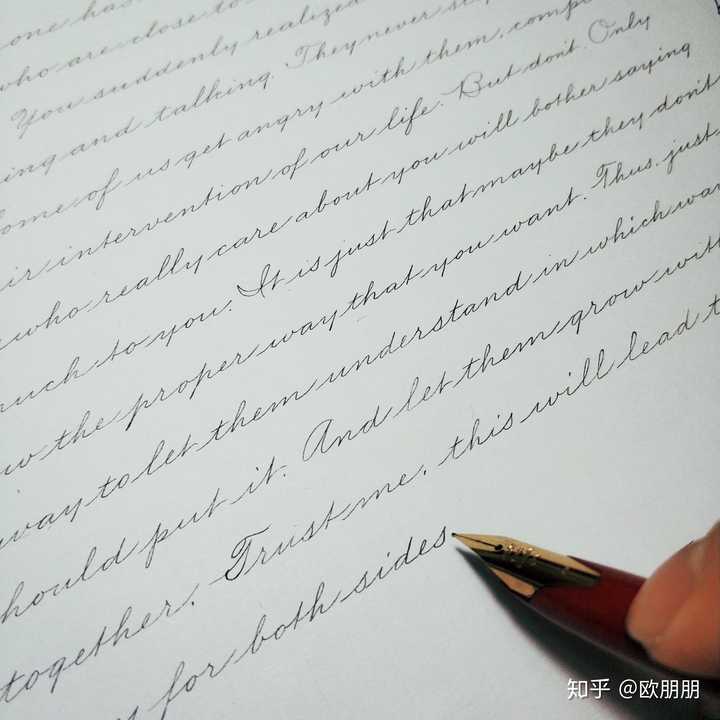 one has
who are close to
You suddenly realized
ing and talking. They never st
some of us get angry with them, comp
ir intervention of our life. But don't. Only
who really care about you will bother saying
much to you. It is just that maybe they don't
w the proper way that you want. Thus. just
way to let them understand in which way
should put it. And let them grow with
together. Trust me, this will lead t
for both sides
知乎 @欧朋朋